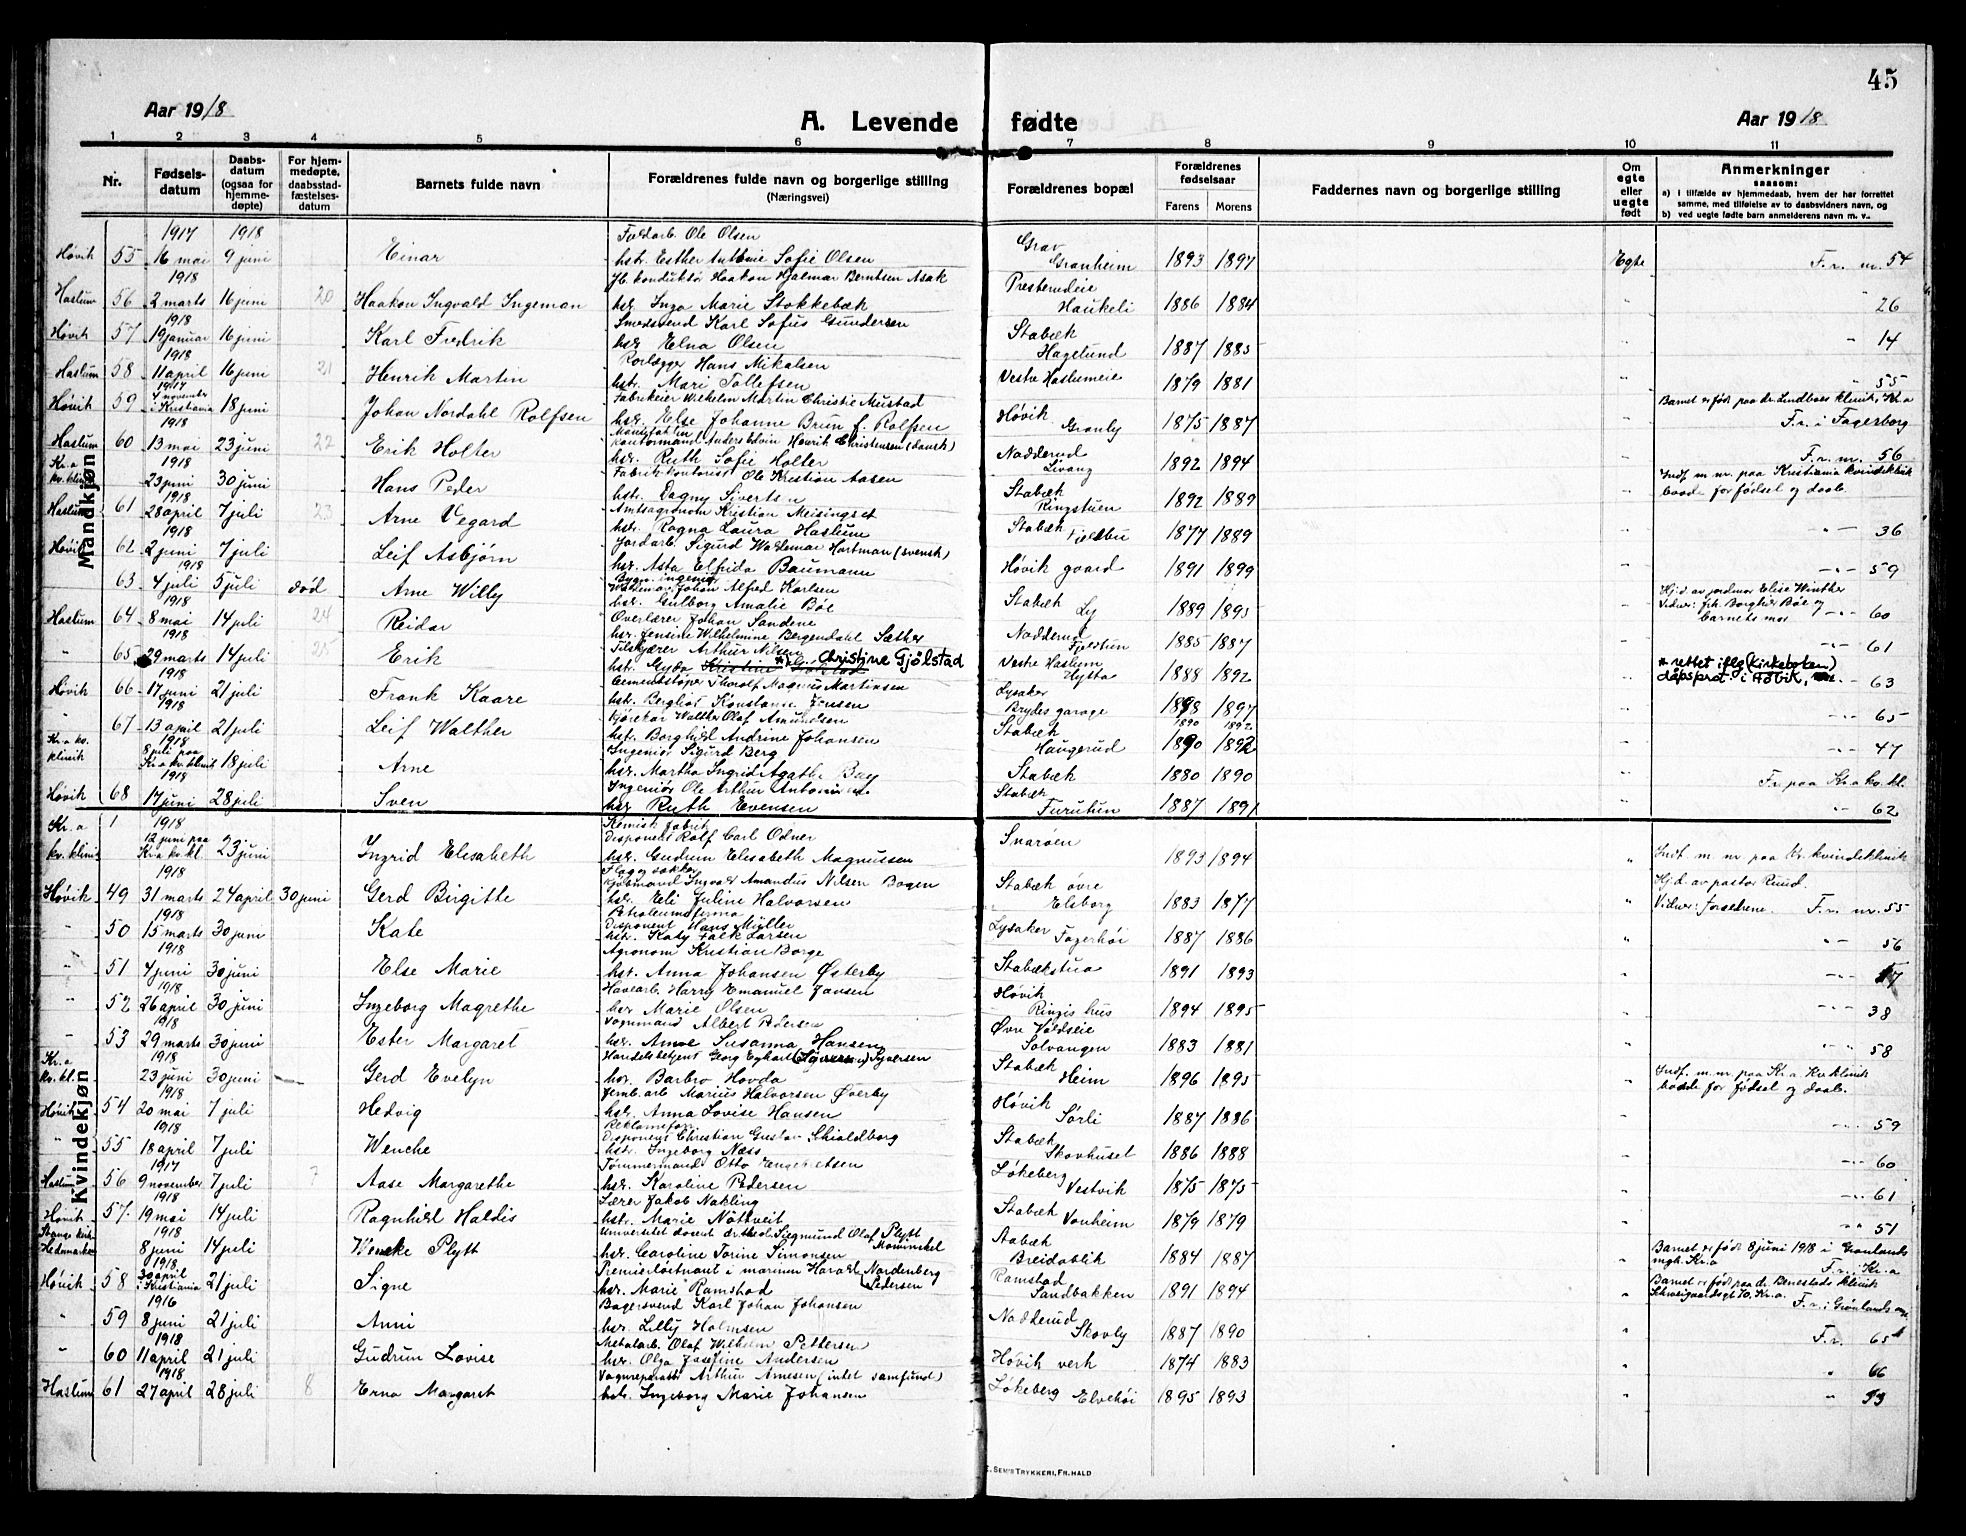 45
Aar 1918
A. Levende fødte
Aar 1918
1 2 3 4 5 6 7 8 9 10 11
Nr.
Fødsels-
datum
Daabs-
datum
(ogsaa for
hjemme-
døpte)
For hjem-
medøpte,
daabsstad-
fæstelses-
datum
Barnets fulde navn
Forældrenes fulde navn og borgerlige stilling
(Næringsvei)
Forældrenes bopæl
Forældrenes
fødselsaar
Farens Morens
Faddernes navn og borgerlige stilling
Om
egte
eller
uegte
født
Anmerkninger
saasom:
a) I tilfælde av hjemmedaab, hvem der har forrettet
samme, med tilføielse av to daabsvidners navn, og
b) ved uegte fødte barn anmelderens navn m. v.
Mandkjøn
1917 1918 Ole Olsen Grav
Høvik 55 16 mai 9 juni Einar hstr. Esther Antonie Sofie Olsen Granheim 1893 1897 Egte F. r. nr. 54
1918 Jb. konduktør Haakon Hjalmar Berntsen Asak
Haslum 56 2 marts 16 juni 20 Haakon Ingvald Ingeman hstr. Inga Marie Stokkebæk Haukeli 1886 1884 " 26
1918 Smedsvend Karl Sofus Gundersen Stabæk
Høvik 57 19 januar 16 juni Karl Fredrik hstr. Elna Olsen Hagelund 1887 1885 " 14
1918 Rørlægger Hans Mikalsen
Haslum 58 11 april 16 juni 21 Henrik Martin hstr. Mari Tollefsen Vestre Haslumeie 1879 1881 " 55
1917 Fabrikeier Wilhelm Martin Christie Mustad
Høvik 59 4 november i Kristiania 18 juni Johan Nordahl Rolfsen hstr. Else Johanne Brun f. Rolfsen Høvik Granly 1875 1887 Barnet er født paa dr. Lindboes klinik, Kr.a F. r. i Fagerborg
1918 (dansk)
Haslum 60 13 mai 23 juni 22 Erik Holter hstr. Ruth Sofie Holter Nadderud Livang 1892 1894 F. r. nr. 56
1918 Fabrik-kontorist Ole Kristian Aasen
Kr.a kv. klinik 23 juni 30 juni Hans Peder hstr. Dagny Sivertsen Stabæk Ringstuen 1892 1889 Indf. m. nr. paa Kristiania kvindeklinik baade for fødsel og daab.
1918 Amtsagronom Kristian Meisingset
Haslum 61 28 april 7 juli 23 Arne Vegard hstr. Ragna Laura Haslum Stabæk 1877 1889 " 36
1918 Jordarb. Sigurd Waldemar Hartman (svensk)
Høvik 62 2 juni 7 juli Leif Asbjørn hstr. Asta Elfrida Baumann Høvik gaard 1891 1899 " 59
1918 Bygn. ingeniør Johan Alfred Karlsen
63 4 juli 5 juli død Arne Willy hstr. Gulborg Amalie Bøe Stabæk Ly 1889 1895 Hj. d. av jordmor Elise Winther Vidner: frk. Borghild Bøe og barnets mor " 60
1918 Overlærer Johan Sandene
Haslum 64 8 mai 14 juli 24 Reidar hstr. Jensine Wilhelmine Bergendahl Sæther Nadderud 1885 1887 " 61
1918 Arthur Nilsen
" 65 29 marts 14 juli 25 Erik hstr. Gyda Christine Gjølstad Vestre Haslum Hytta 1888 1892 * rettet iflg (Kirkeboken) dåpsprot. i Høvik, " 63
1918 Cementstøper Thorolf Magnus Martinsen
Høvik 66 17 juni 21 juli Frank Kaare hstr. Bergliot Konstanse Jensen Lysaker Brydes garage 1898 1897 " 65
1918 Kjørekar Walther Olaf Amundsen 1890 1892
" 67 13 april 21 juli Leif Walther hstr. Borghild Andrine Johansen Stabæk Haugerud 1890 1892 " 47
1918 Ingeniør Sigurd Berg
Kr.a kv. klinik 8 juli paa Kr.a kv. klinik 18 juli Arne hstr. Martha Ingrid Agathe Bay Stabæk 1880 1890 F. r. paa Kr.a kv. kl.
1918 Ingeniør Ole Arthur Antonisen
Høvik 68 17 juni 28 juli Sven hstr. Ruth Evensen Stabæk Furutun 1887 1891 " 62
Kvindekjøn
1918 Disponent Rolf Carl Odner
Kr.a kv. klinik 1 12 juni paa Kr.a kv. kl. 23 juni Ingrid Elisabeth hstr. Gudrun Elisabeth Magnussen Snarøen 1893 1894 " Indf. m. nr. paa Kr. kvindeklinik
1918 Ingvald Amandus Nilsen Bogen
Høvik 49 31 marts 24 april 30 juni Gerd Birgitte hstr. Eli Juline Halvorsen Stabæk øvre Elsborg 1883 1877 " Hj. d. av pastor Ruud. Vidner: forældrene. F. r. nr. 55
1918 Petroleumsfirma Disponent Hans Müller
" 50 15 marts 30 juni Kate hstr. Katy Falk Larsen Lysaker Fagerhøi 1887 1886 " 56
1918 Agronom Kristian Borge
" 51 4 juni 30 juni Else Marie hstr. Anna Johansen Østerby Stabækstua 1891 1893 " 57
1918 Havearb. Harry Emanuel Jansen
" 52 26 april 30 juni Ingeborg Magrethe hstr. Marie Olsen Høvik Ringis hus 1894 1895 " 38
1918 Vognmand Albert Pedersen
" 53 29 marts 30 juni Ester Margaret hstr. Anne Susanna Hansen Øvre Voldseie Solvangen 1883 1881 " 58
1918 Handelsbetjent Georg Syversen
Kr.a kv. kl. 23 juni 30 juni Gerd Evelyn hstr. Barbro Hovda Stabæk Heim 1896 1895 Indf. m. nr. paa Kr.a Kv. klinik baade for fødsel og daab.
1918 Jernb. arb. Marius Halvorsen Øverby
Høvik 54 20 mai 7 juli Hedvig hstr. Anna Lovise Hansen Høvik Sørli 1887 1886 " 59
1918 Disponent Christian Gustav Schioldborg
" 55 18 april 7 juli Wenche hstr. Ingeborg Næss Stabæk Skovhuset 1886 1888 " 60
1917 Tømmermand Otto Engebretsen
Haslum 56 9 november 7 juli 7 Aase Margarethe hstr. Karoline Pedersen Løkeberg Vestvik 1875 1875 " 61
1918 Lærer Jakob Nakling
Høvik 57 19 mai 14 juli Ragnhild Haldis hstr. Marie Nøttveit Stabæk Vonheim 1879 1879 " 51
1918 Universitetsdosent dr. theol. Sigmund Olaf Plytt Mowinckel
Stange kirke Hedemarken 8 juni 14 juli Wencke Plytt hstr. Caroline Torine Simonsen Stabæk Breidablik 1884 1887 Barnet er født 8 juni 1918 i Grønlands mgh. Kr.a F. r. i Kr.a
1918 Premierløitnant i marinen Harald Nordenberg Pedersen
Høvik 58 30 april i Kristiania 21 juli Signe hstr. Marie Ramstad Ramstad Sandbakken 1891 1894 " Barnet er født paa dr. Benestads klinik Schweigaardsgt 70, Kr.a. F. r. i Grønlands
1916 Bagersvend Karl Johan Johansen
" 59 8 juni 21 juli Anni hstr. Lilly Holmsen Nadderud Skovly 1887 1890 " F. r. 65
1918 Metalarb. Olaf Wilhelm Pettersen
" 60 11 april 21 juli Gudrun Lovise hstr. Olga Josefine Andersen Høvik verk 1874 1883 " 66
1918 Vognreparatør Arthur Arnesen (intet samfund)
Haslum 61 27 april 28 juli 8 Erna Margaret hstr. Ingeborg Marie Johansen Løkeberg Elvehøi 1895 1893 " 53
E. SEM'S TRYKKERI, FR.HALD